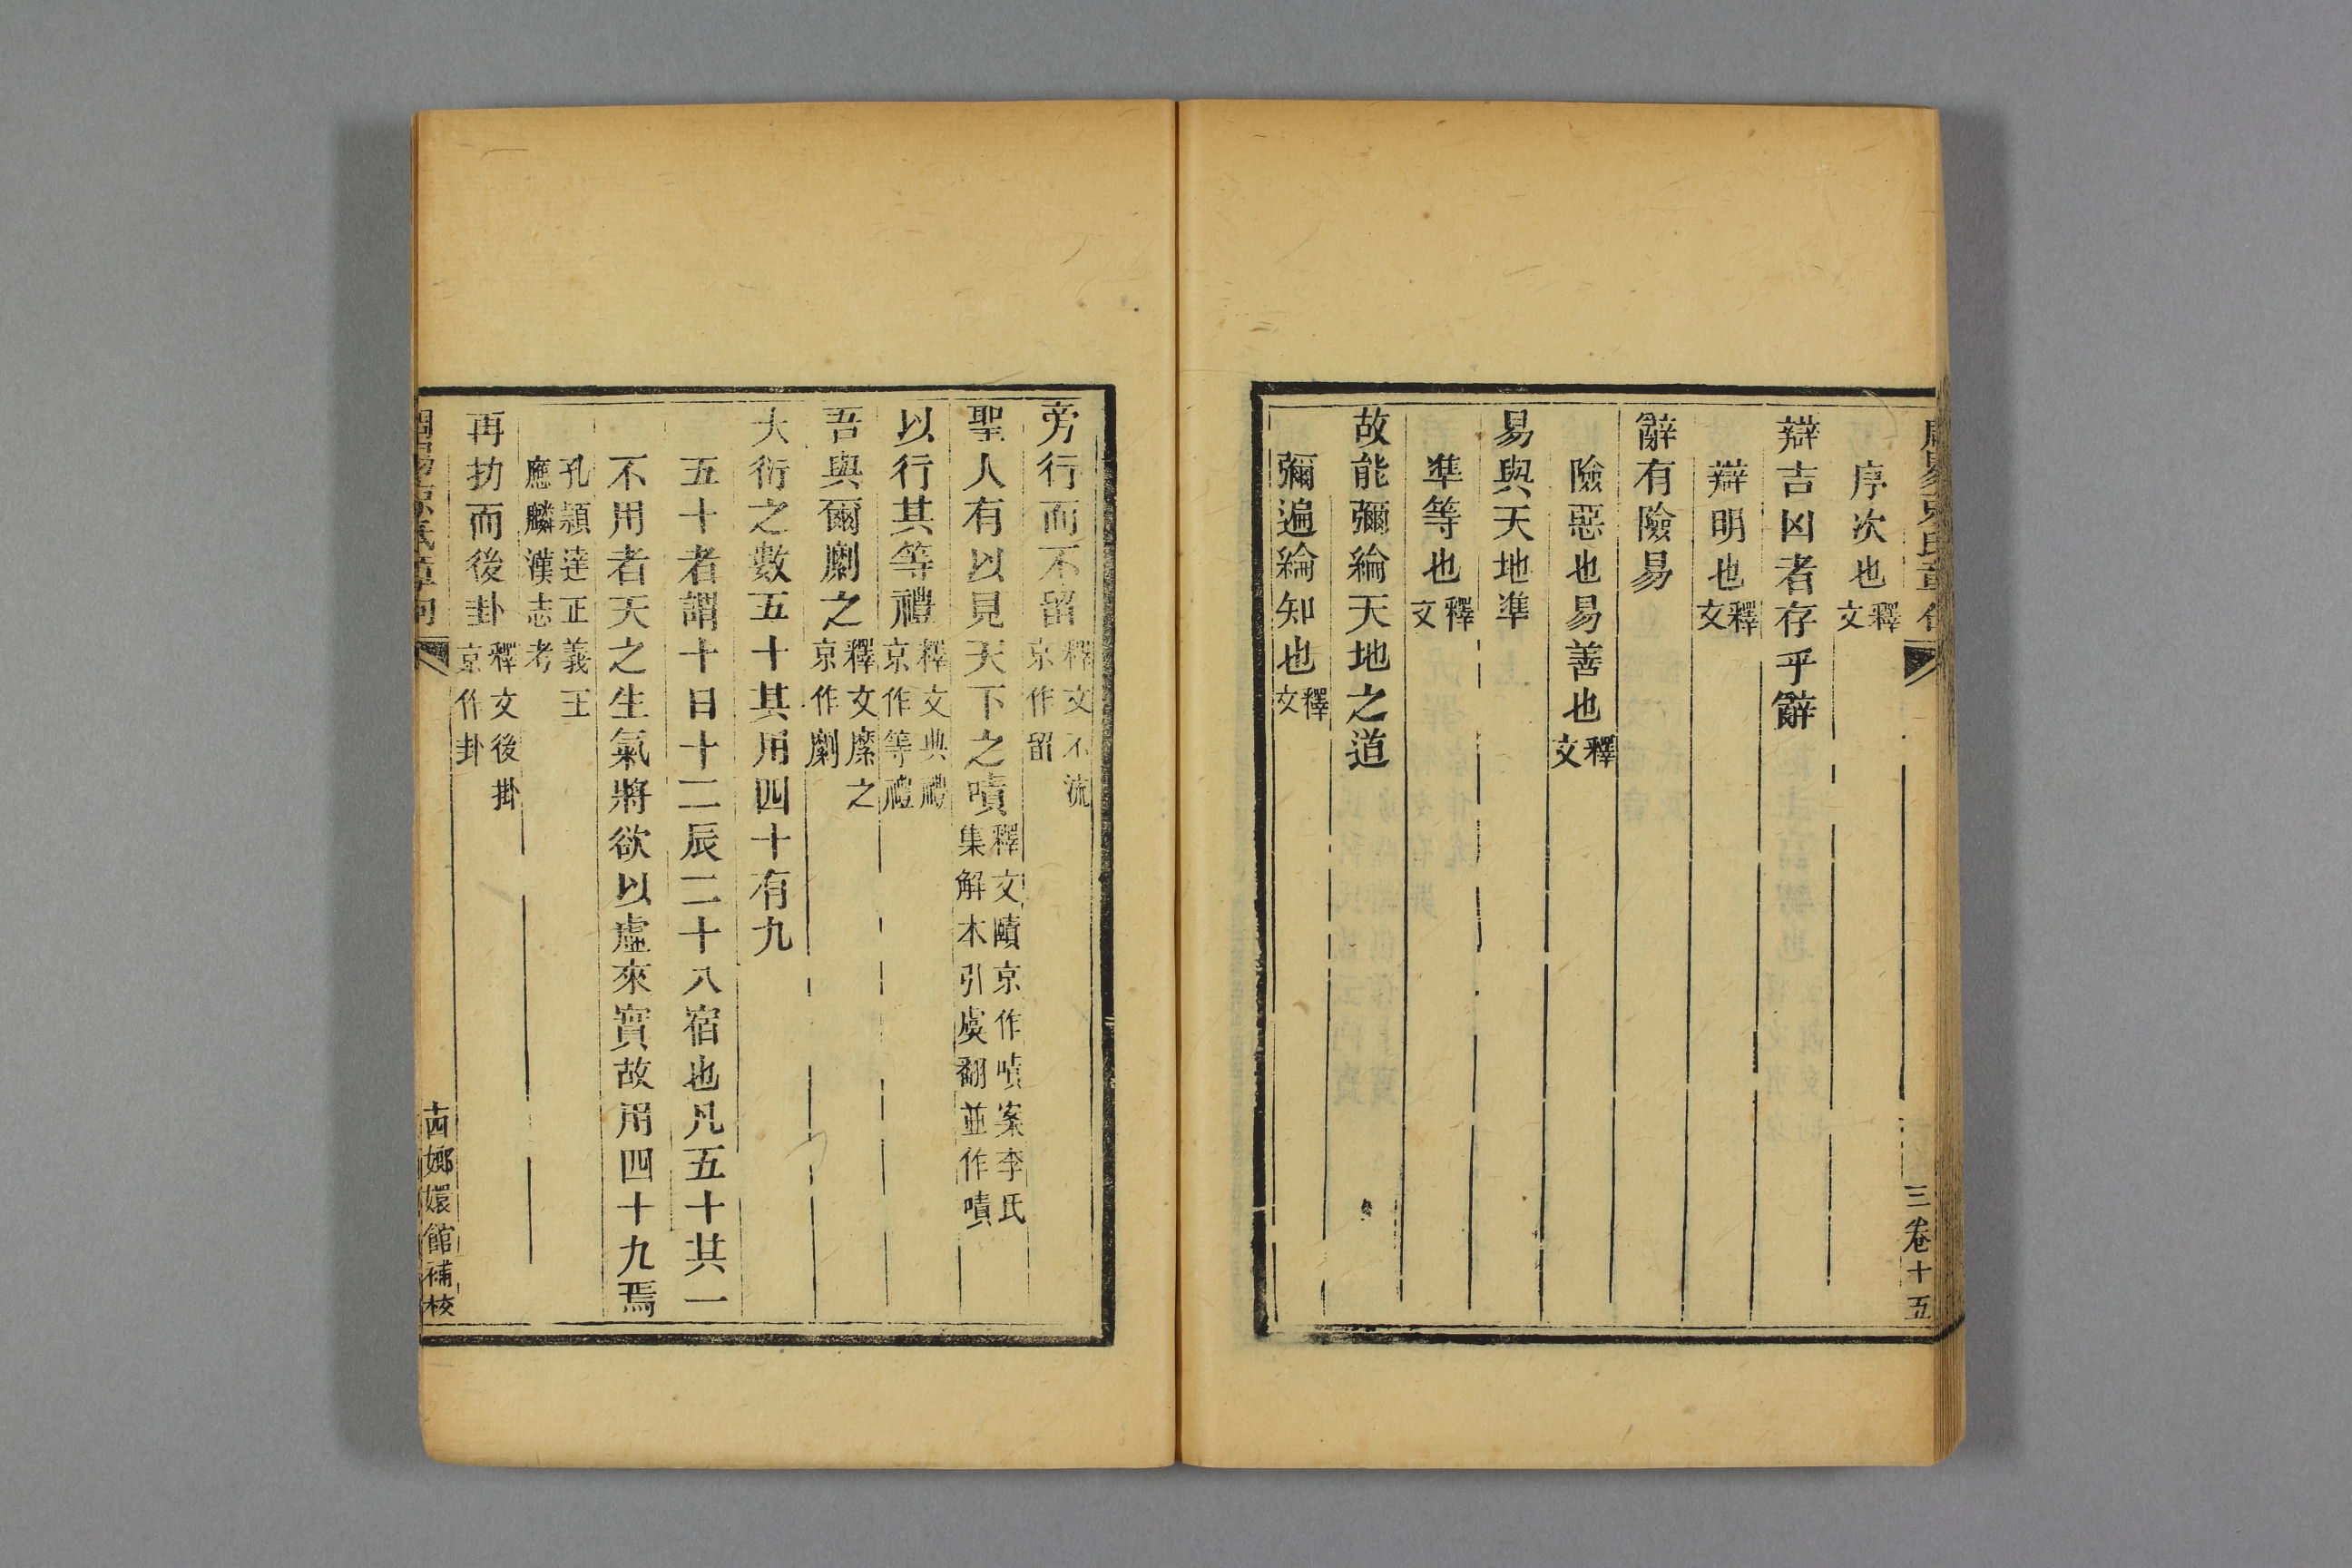 周易京氏章句
三卷十五
序次也釋文
辯吉凶者存乎辭
辯明也釋文
辭有險易
險惡也易善也釋文
易與天地準
準等也釋文
故能彌綸天地之道
彌遍綸知也釋文
旁行而不留釋文不流京作留
聖人有以見天下之嘖釋文賾京作嘖案李氏集解本引虞翻並作嘖
以行其等禮釋文典禮京作等禮
吾與爾劘之釋文縻之京作劘
大衍之數五十其用四十有九
五十者謂十日十二辰二十八宿也凡五十其一
不用者天之生氣將欲以虛來實故用四十九焉
孔穎達正義王應麟漢志考
再扐而後卦釋文後掛京作卦
周易京氏章句
嫏嬛館補校